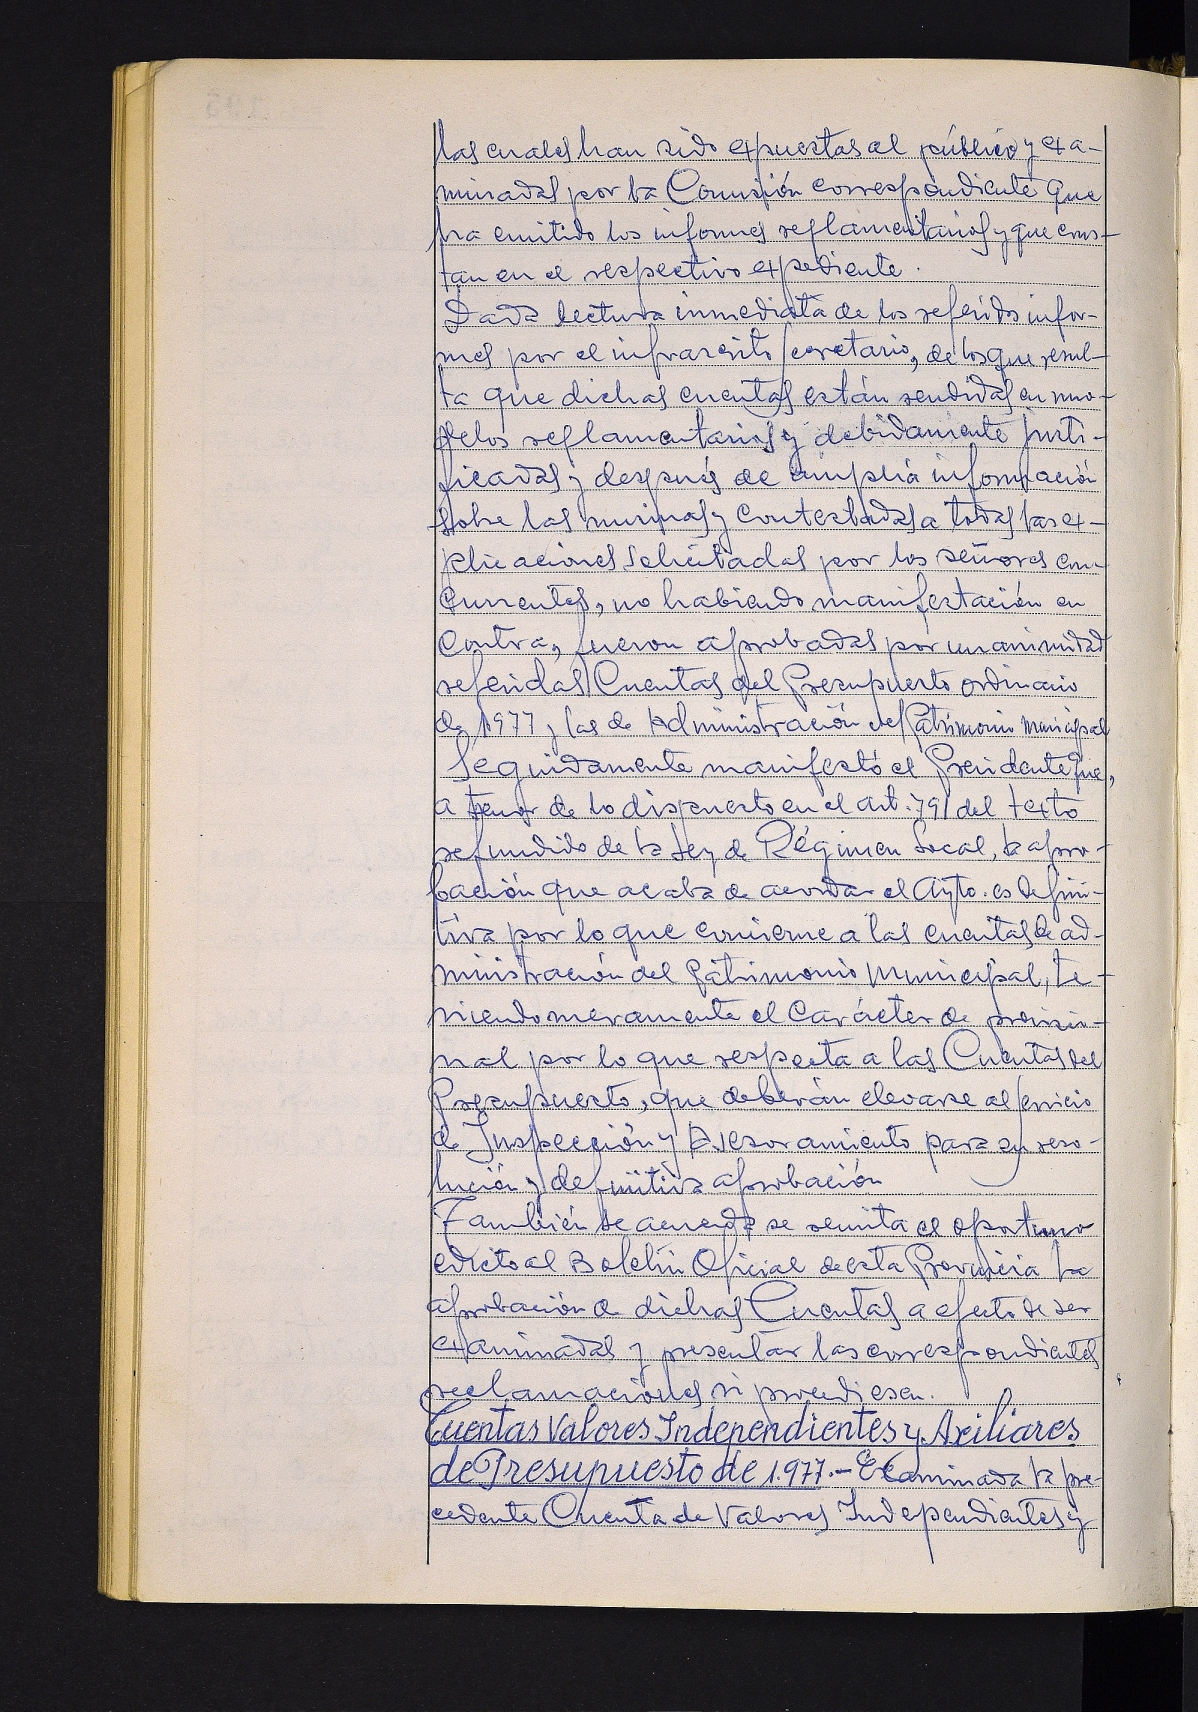 las cuales han sido expuestas al público y exa-
minadas por la Comisión correspondiente que
ha emitido los informes reglamentarios y que cons-
tan en el respectivo expediente.
Dada lectura inmediata de los referidos infor-
mes por el infrascrito Secretario, de los que resul-
ta que dichas cuentas están rendidas en mo-
delos reglamentarios y debidamente justi-
ficadas y después de amplia información
sobre las mismas y contestadas a todas las ex-
plicaciones solicitadas por los señores con-
currentes, no habiendo manifestación en
contra, fueron aprobadas por unanimidad
referidas Cuentas del Presupuesto ordinario
de 1977 y las de Administración del Patrimonio Municipal
Seguidamente manifestó el Presidente que,
a tenor de lo dispuesto en el art. 791 del texto
refundido de la Ley de Régimen Local, la apro-
bación que acaba de acordar el Ayto. es defini-
tiva por lo que concierne a las cuentas de ad-
ministración del Patrimonio Municipal, te-
niendo meramente el carácter de provisio-
nal por lo que respecta a las Cuentas del
Presupuesto, que deberán elevarse al Servicio
de Inspección y Asesoramiento para su reso-
lución y definitiva aprobación
También se acuerda se remita el oportuno
edicto al Boletín Oficial de esta Provincia la
aprobación de dichas Cuentas a efecto de ser
examinadas y presentar las correspondientes
reclamaciones si procediesen.
Cuentas Valores Independientes y Axiliares
de Presupuesto de 1.977.- Examinada la pre-
cedente Cuenta de Valores Independientes y